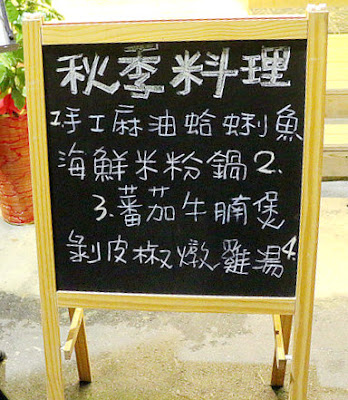 秋季料理
1.手工麻油蛤蜊魚
海鮮米粉鍋2.
3.蕃茄牛腩煲
剝皮椒燉雞湯4.